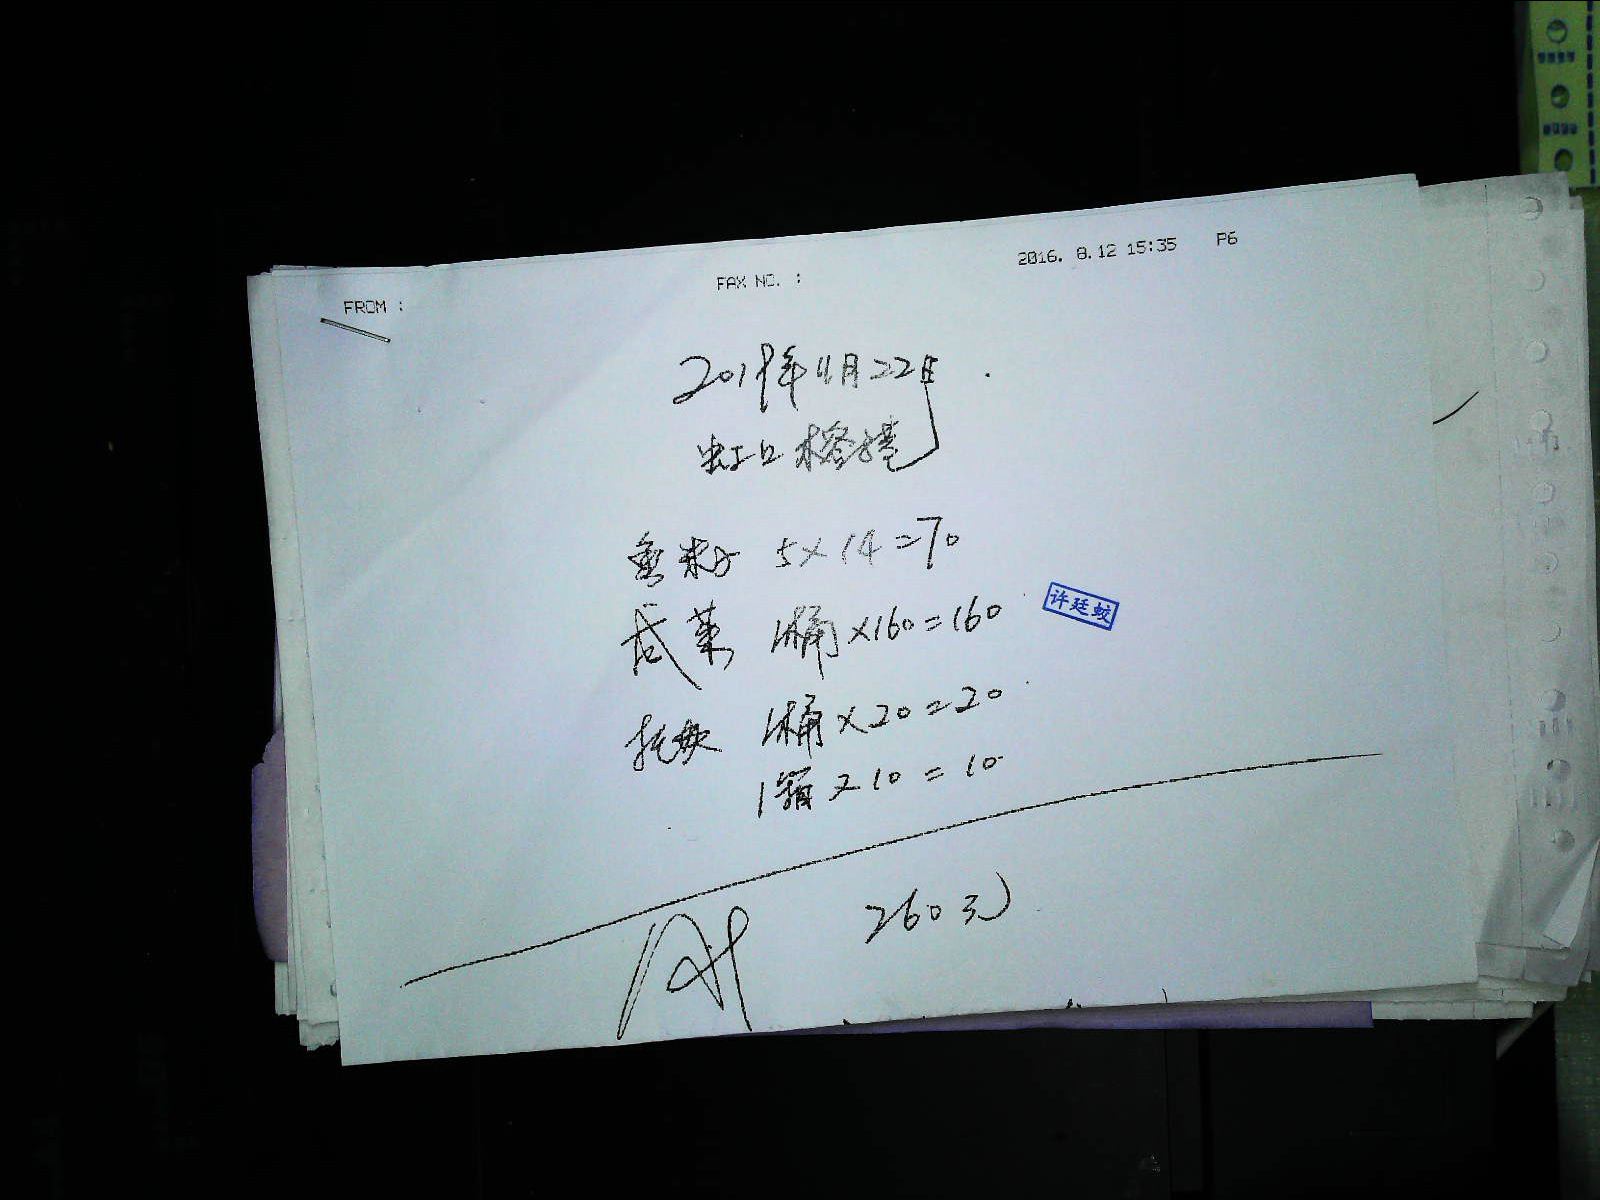 FROM :
FAX NO. :
2016. 8.12 15:35 P6
2019年11月22日
虹口榕港
鱼籽 5×14=70
咸菜 1桶×160=160
许廷蛟
托块 1桶×20=20
1箱×10=10
260元